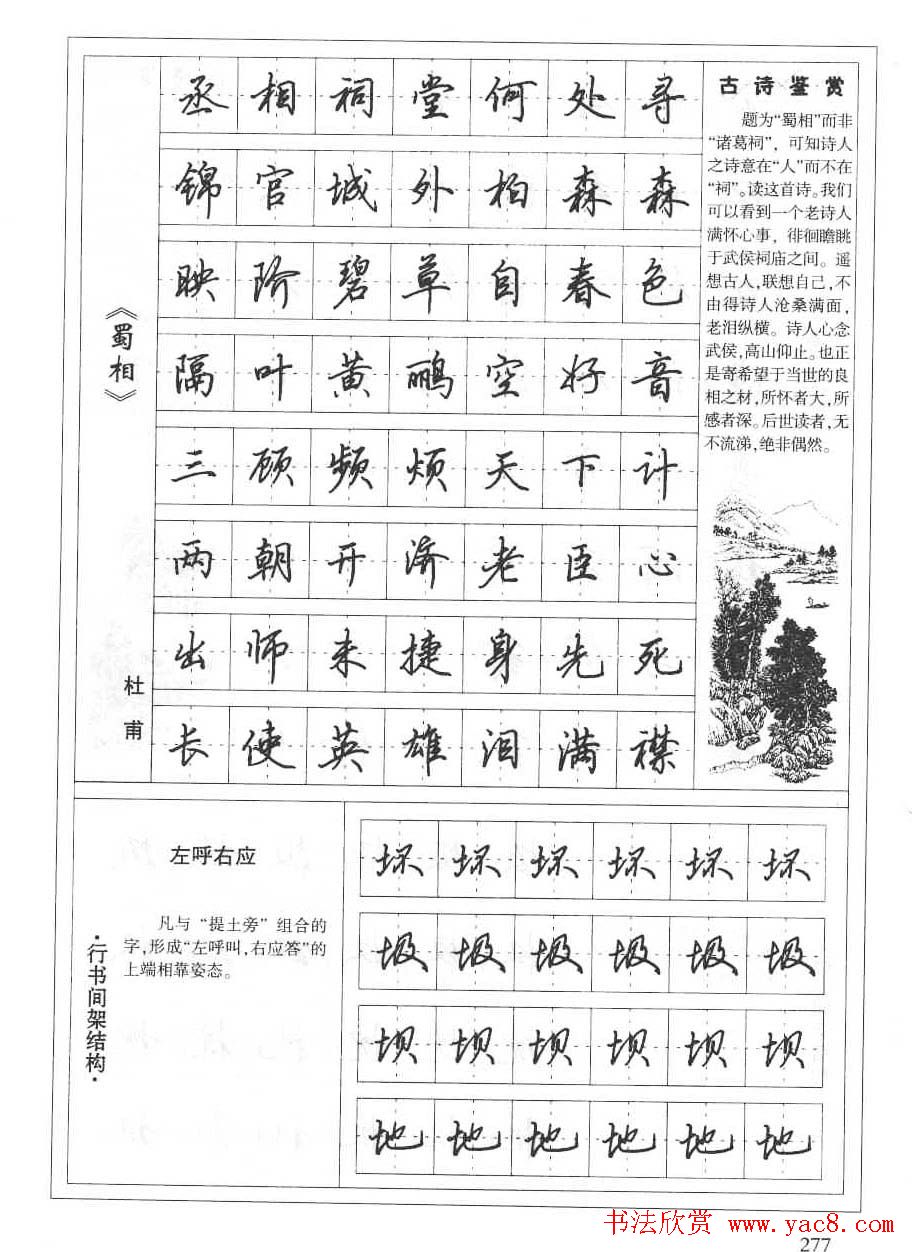 《蜀相》
杜甫
丞相祠堂何处寻
锦官城外柏森森
映阶碧草自春色
隔叶黄鹂空好音
三顾频烦天下计
两朝开济老臣心
出师未捷身先死
长使英雄泪满襟
古诗鉴赏
题为“蜀相”而非
“诸葛祠”，可知诗人
之诗意在“人”而不在
“祠”。读这首诗。我们
可以看到一个老诗人
满怀心事，徘徊瞻眺
于武侯祠庙之间。遥
想古人，联想自己，不
由得诗人沧桑满面，
老泪纵横。诗人心念
武侯，高山仰止。也正
是寄希望于当世的良
相之材，所怀者大，所
感者深。后世读者，无
不流涕，绝非偶然。
·行书间架结构·
左呼右应
凡与“提土旁”组合的
字，形成“左呼叫，右应答”的
上端相靠姿态。
坏坏坏坏坏坏
圾圾圾圾圾圾
坝坝坝坝坝坝
地地地地地地
书法欣赏 www.yac8.com
277